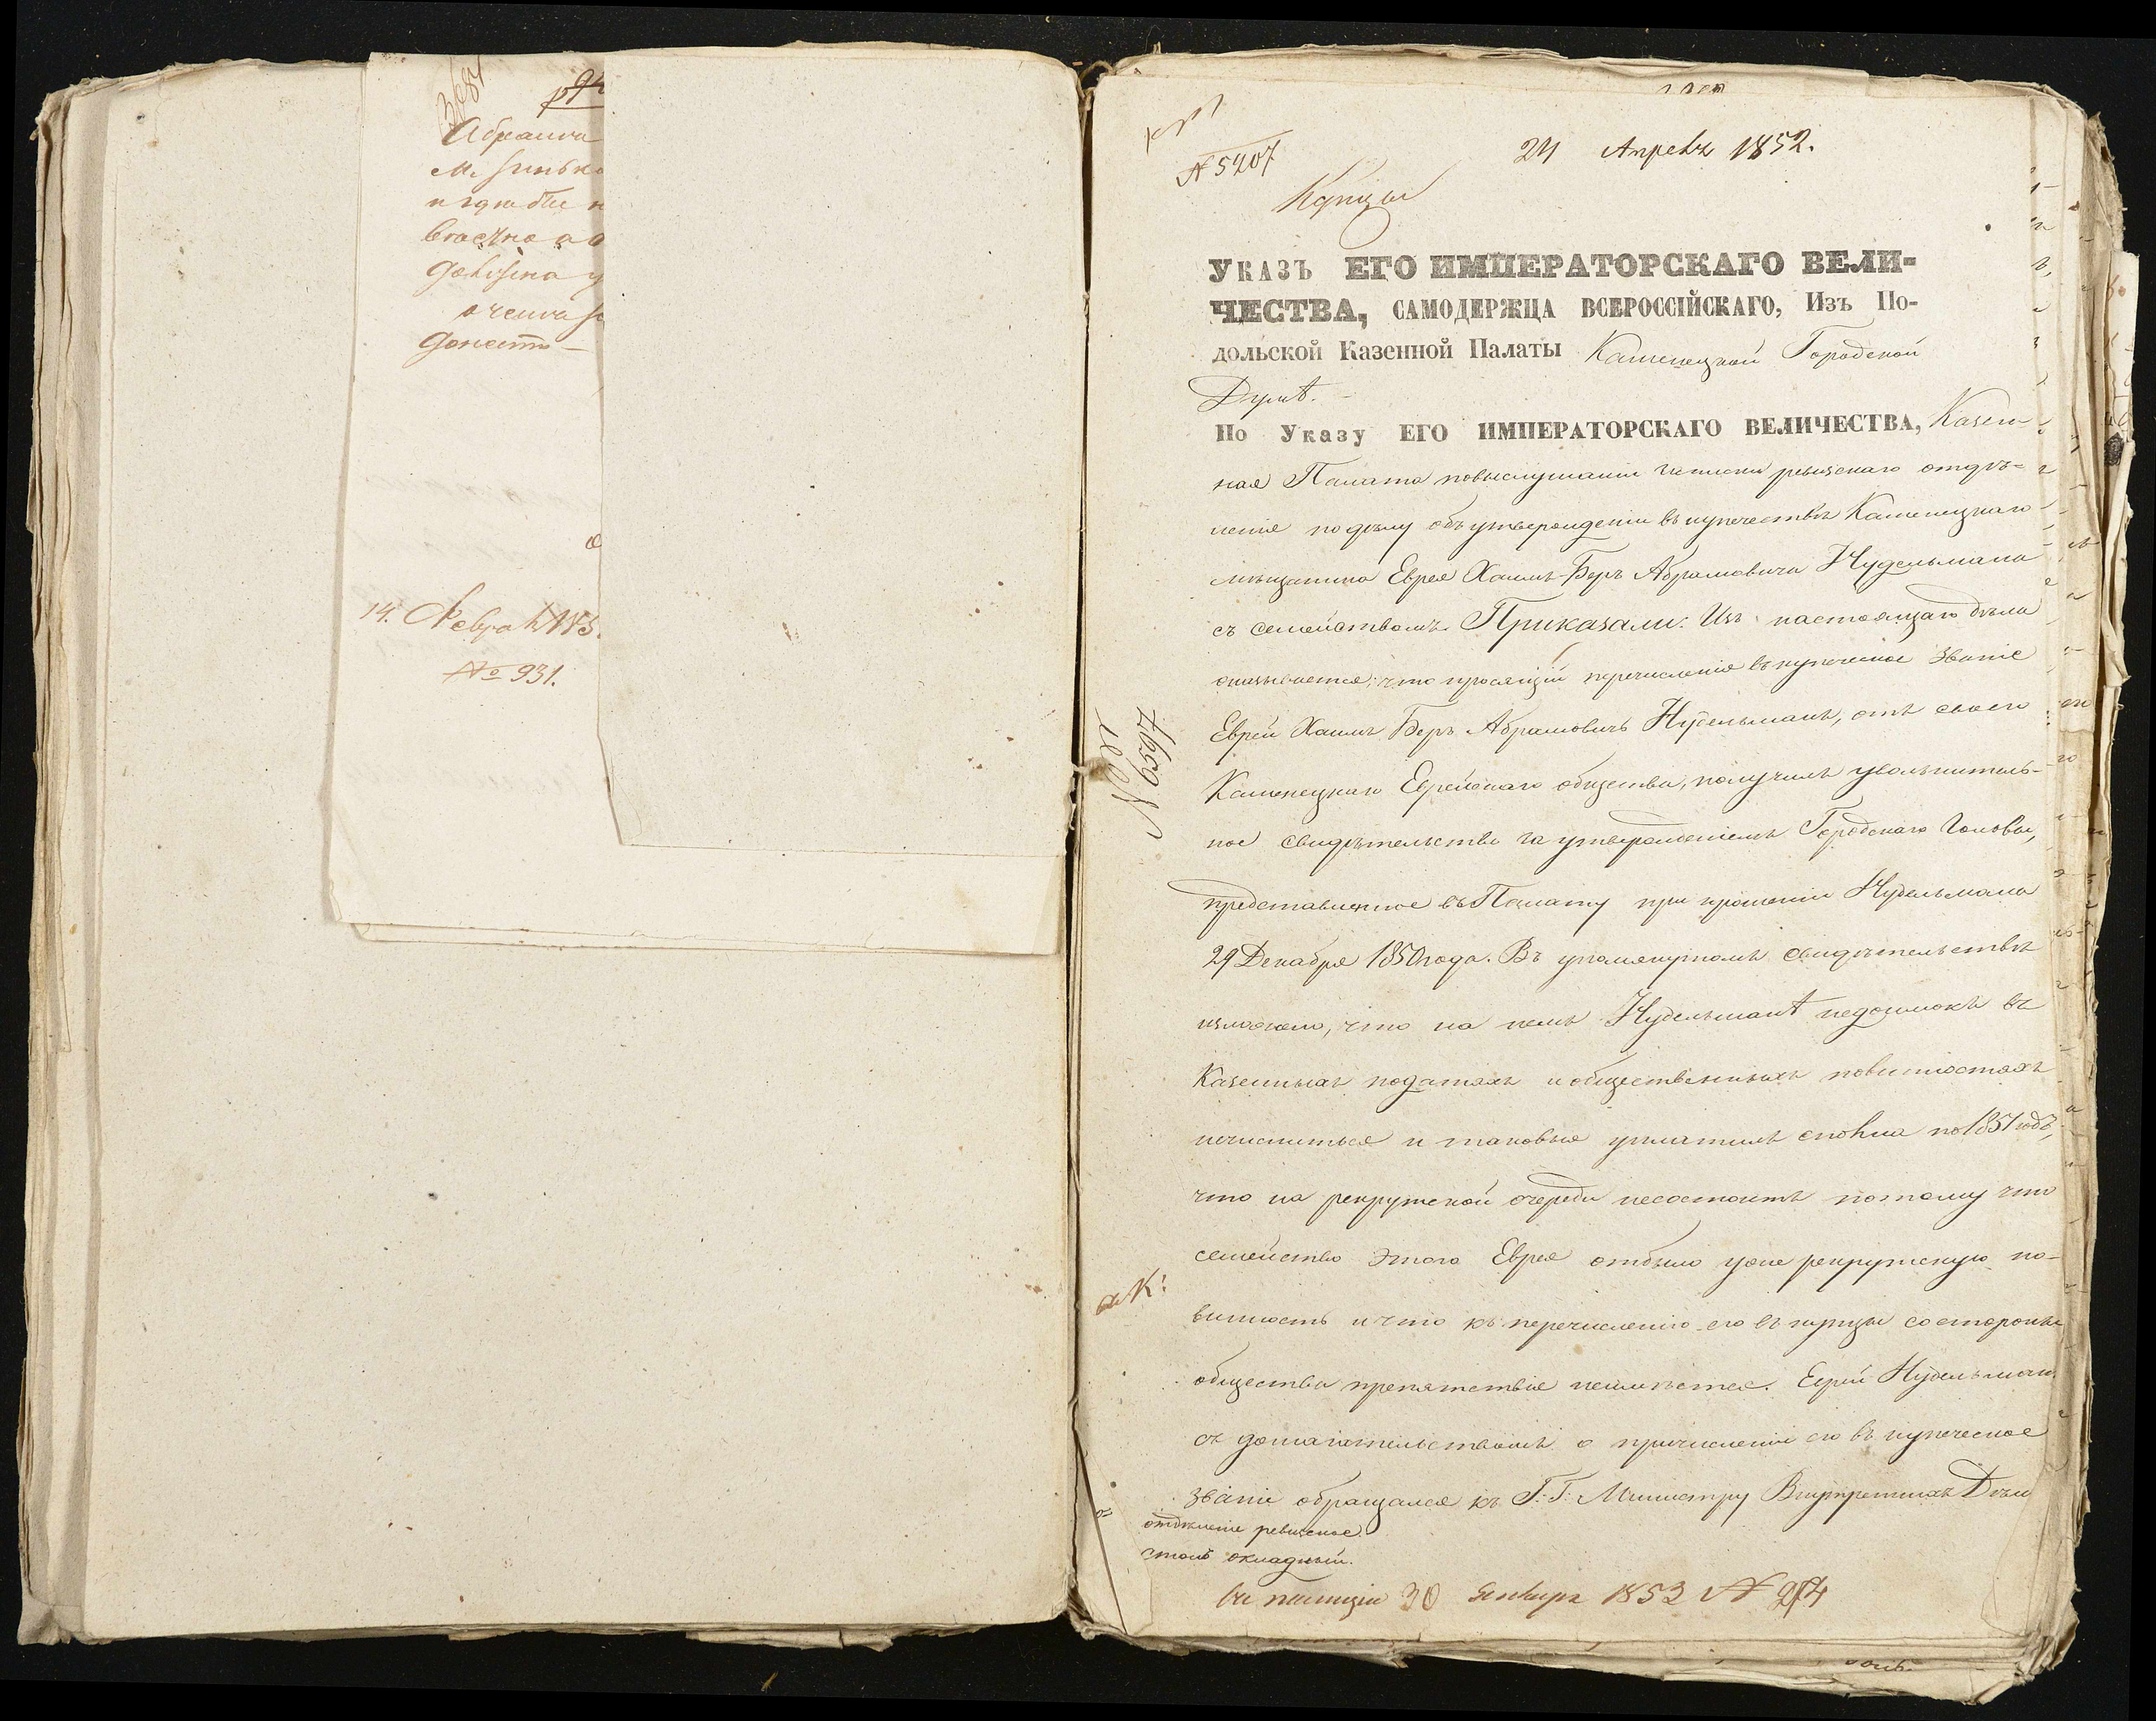 Абрама
14. Февраля 185
№ 931.
№ 5207
24 Апреля 1852.
Купцы
УКАЗЪ ЕГО ИМПЕРАТОРСКАГО ВЕЛИ-
ЧЕСТВА, САМОДЕРЖЦА ВСЕРОССІЙСКАГО, Изъ По-
дольской Казенной Палаты Каменецкой Городской
Думѣ.
По Указу ЕГО ИМПЕРАТОРСКАГО ВЕЛИЧЕСТВА, Казен-
ная Палата по выслушаніи записки ревизскаго отдѣ-
ленія по дѣлу объ утвержденіи въ купечествѣ Каменецкаго
мѣщанина Еврея Хаимъ-Беръ Абрамовича Нудельмана
съ семействомъ. Приказали: Изъ настоящаго дѣла
оказывается, что просящій перечисленія въ купеческое званіе
Еврей Хаимъ Беръ Абрамовичъ Нудельманъ, отъ своего
Каменецкаго Еврейскаго общества, получилъ увольнитель-
ное свидѣтельство за утвержденіемъ Городскаго Головы,
представленное въ Палату при прошеніи Нудельмана
29 Декабря 1850 года. Въ упомянутомъ свидѣтельствѣ
изложено, что на немъ Нудельманѣ недоимокъ въ
Казенныхъ податяхъ и общественныхъ повинностяхъ
нечислиться и таковые уплатилъ сполна по 1851 годъ,
что на рекрутской очереди несостоитъ потому что
семейство этого Еврея отбыло уже рекрутскую по-
винность и что къ перечисленію его въ купцы со стороны
общества препятствіе неимѣется. Еврей Нудельманъ
съ домагательствомъ о причисленіи его въ купеческое
званіе обращался къ Г. Г. Министру Внутреннихъ Дѣлъ
отдѣленіе ревизское.
столъ окладный.
4697
въ полицію 30 Января 1853 №